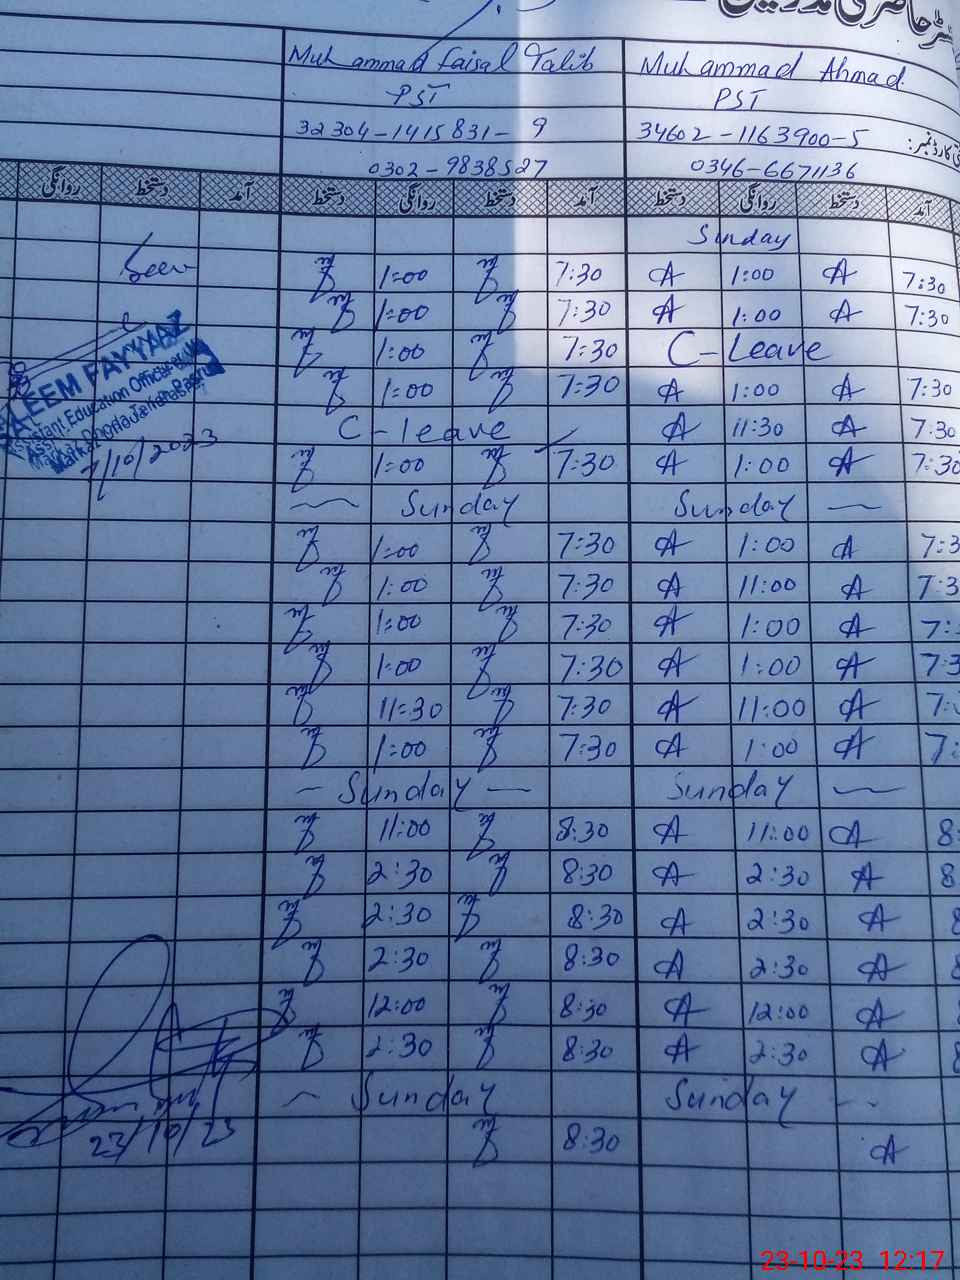 Muhammad Faisal Talib Muhammad Ahmad
PST PST
32304-1415831-9 34602-1163900-5
0302-9838527 0346-6671136
روانگی دستخط آمد دستخط روانگی دستخط آمد دستخط روانگی دستخط آمد
Sunday
Seen 1:00 7:30 A 1:00 A 7:30
1:00 7:30 A 1:00 A 7:30
1:00 7:30 C-Leave
1:00 7:30 A 1:00 A 7:30
C-leave A 11:30 A 7:30
1:00 7:30 A 1:00 A 7:30
SALEEM FAYYAZ
Assistant Education Officer
7/10/2023
Sunday Sunday
1:00 7:30 A 1:00 A 7:3
1:00 7:30 A 11:00 A 7:3
1:00 7:30 A 1:00 A 7:
1:00 7:30 A 1:00 A 7:3
11:30 7:30 A 11:00 A 7:
1:00 7:30 A 1:00 A 7:
Sunday Sunday
11:00 8:30 A 11:00 A 8:
2:30 8:30 A 2:30 A 8
2:30 8:30 A 2:30 A 8
2:30 8:30 A 2:30 A 8
12:00 8:30 A 12:00 A 8
2:30 8:30 A 2:30 A 8
Sunday Sunday
23/10/23 8:30 A
23-10-23 12:17